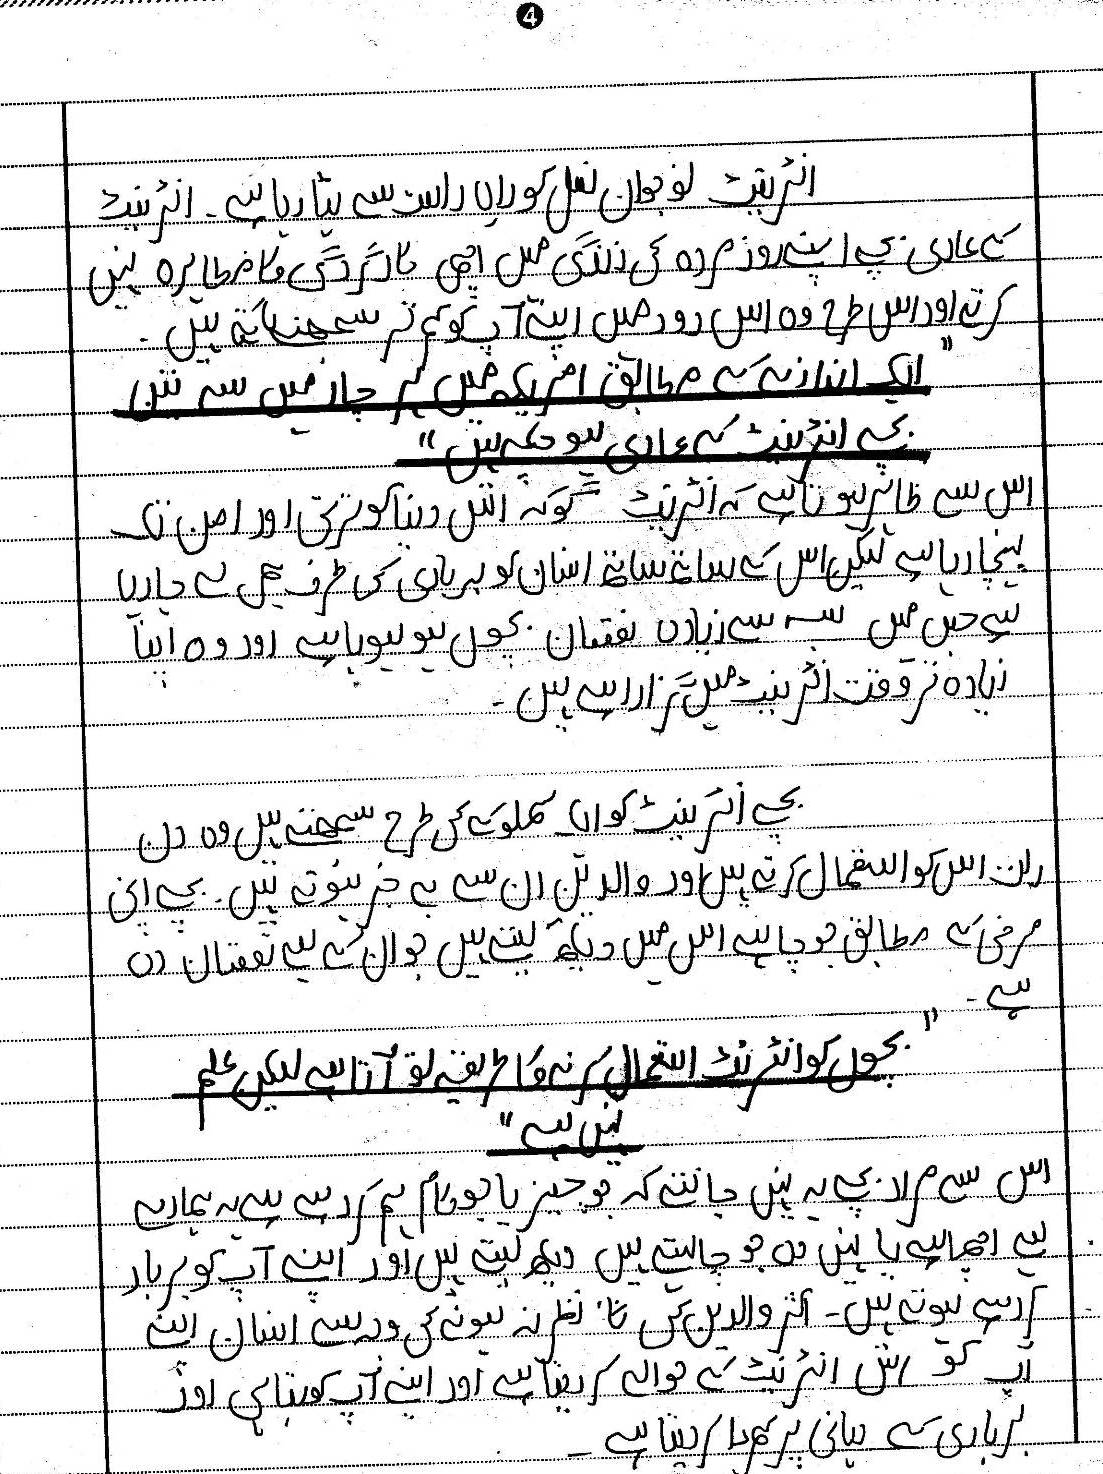 4
انٹرنیٹ نوجوان نسل کو راہ راست سے ہٹا رہا ہے۔ انٹرنیٹ
کے عادی بچے اپنے روزمردہ کی زندگی میں اچھی کارکردگی کا مظاہرہ نہیں
کرتے اور اس طرح وہ اس دور میں اپنے آپ کو کم تر سمجھنے لگتے ہیں۔
"ایک اندازے کے مطابق امریکہ میں ہر چار میں سے تین
بچے انٹرنیٹ کے عادی ہو چکے ہیں"
اس سے ظاہر ہوتا ہے کہ انٹرنیٹ گوکہ اس دنیا کو ترقی اور امن تک
پہنچا رہا ہے لیکن اس کے ساتھ ساتھ انسان کو بربادی کی طرف بھی لے جا رہا
ہے جس میں سب سے زیادہ نقصان بچوں کو ہو رہا ہے اور وہ اپنا
زیادہ تر وقت انٹرنیٹ میں گزار رہے ہیں۔
بچے انٹرنیٹ کو ایک کھلونے کی طرح سمجھتے ہیں وہ دن
رات اس کو استعمال کرتے ہیں اور والدین ان سے بے خبر ہوتے ہیں۔ بچے اپنی
مرضی کے مطابق جو چاہے اس میں دیکھ لیتے ہیں جو ان کے لیے نقصان دہ
ہے۔
"بچوں کو انٹرنیٹ استعمال کرنے کا طریقہ تو آتا ہے لیکن علم
نہیں ہے"
اس سے مراد بچے یہ نہیں جانتے کہ جو چیز یا جو کام ہم کر رہے ہے یہ ہمارے
لیے اچھا ہے یا نہیں وہ جو چاہتے ہیں دیکھ لیتے ہیں اور اپنے آپ کو برباد
کر رہے ہوتے ہیں۔ اکثر والدین کی نظر نہ ہونے کی وجہ سے انسان اپنے
آپ کو اس انٹرنیٹ کے حوالے کر دیتا ہے اور اپنے آپ کو تباہی اور
بربادی کے دہانی پر کھڑا کر دیتا ہے۔